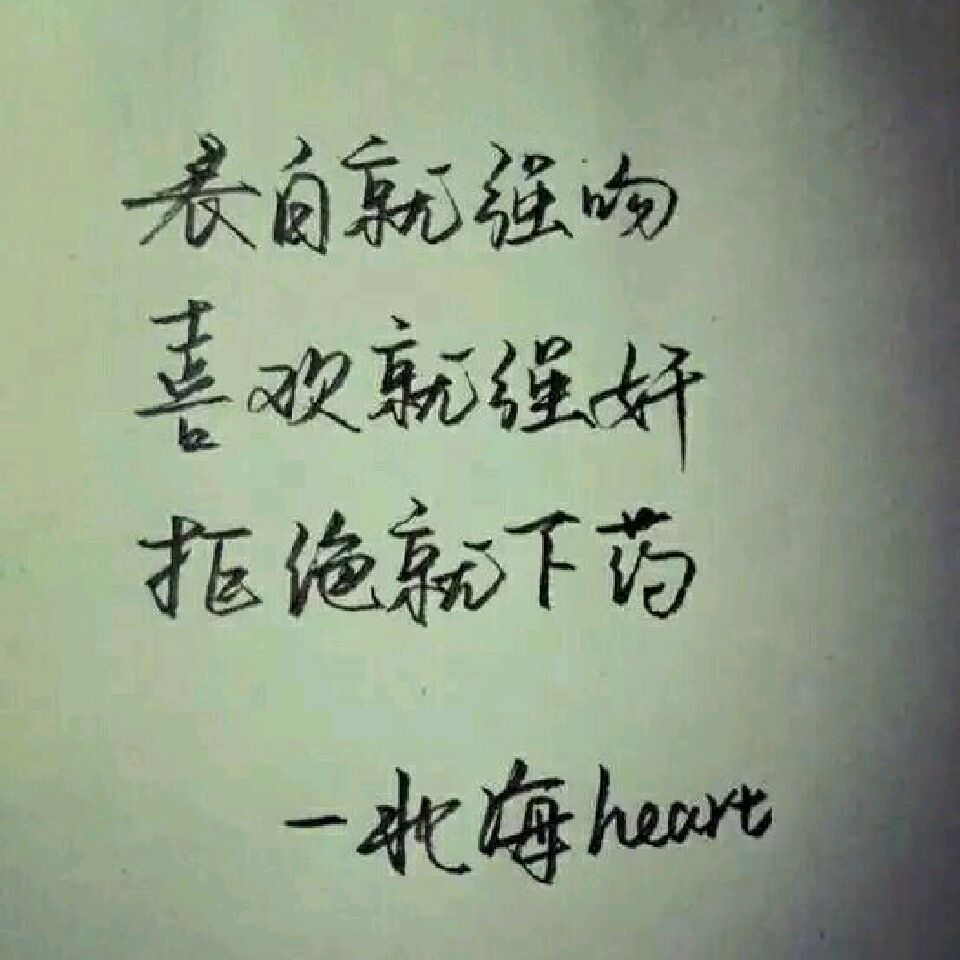 表白就强吻
喜欢就强奸
拒绝就下药
—北海heart